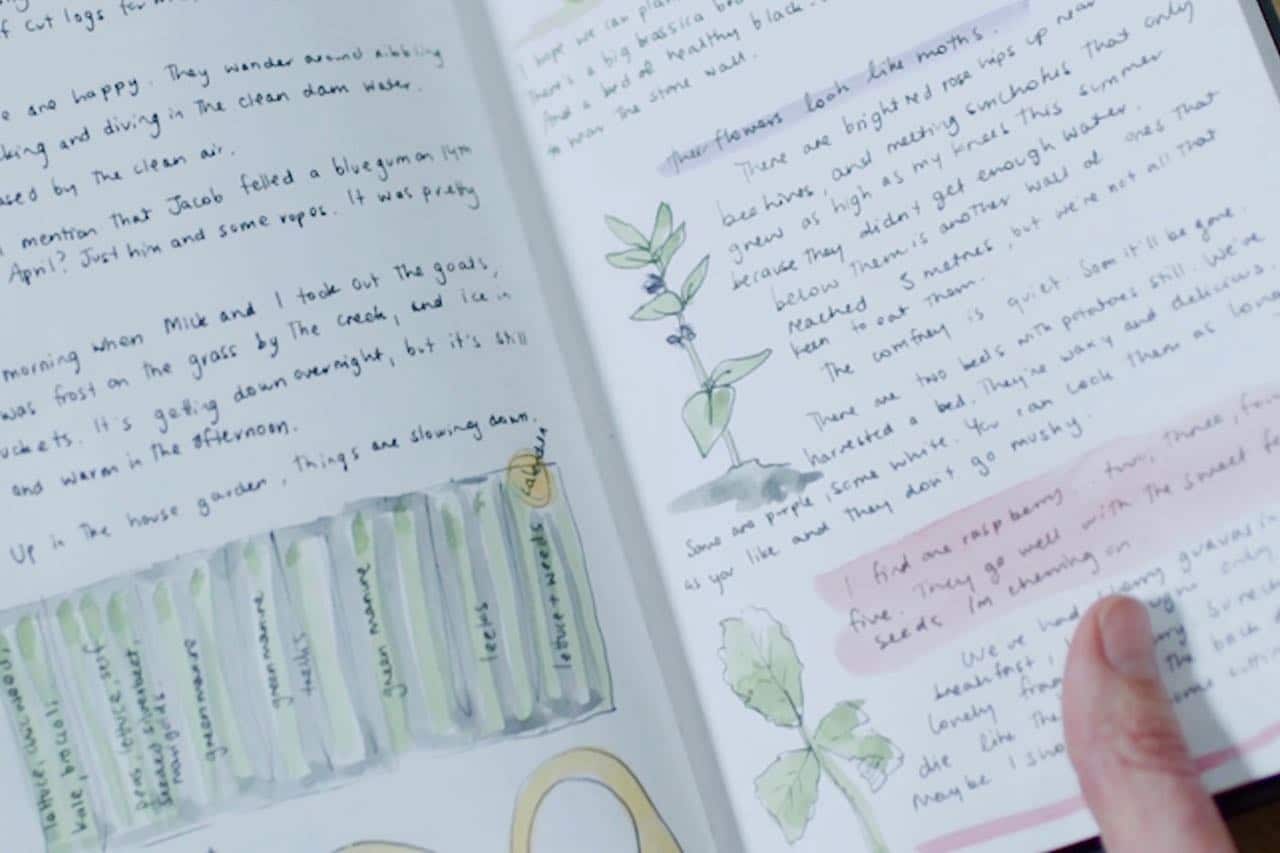 f cut logs for
are happy. They wander around nibbling
king and diving in the clean dam water.
ased by the clean air.
mention that Jacob felled a bluegum on 14m
April? Just him and some ropes. It was pretty
morning when Mick and I took out the goats,
was frost on the grass by the creek, and ice in
uckets. It's getting down overnight, but it's still
and warm in the afternoon.
Up in the house garden, things are slowing down.
kale, broccoli,
peas, lettuce, self
seeded silverbeet,
mangolds
green manure
green manure
green manure
leeks
lettuce + weeds
I hope we can plan
there's a big brassica
And a bed of healthy black
near the stone wall.
Their flowers look like moths.
There are bright red rose hips up near
beehives, and melting sunchokes that only
grew as high as my knees this summer
because they didn't get enough water.
below them is another wall of ones that
reached 5 metres, but we're not all that
keen to eat them.
The comfrey is quiet. Soon it'll be gone.
There are two beds with potatoes still. We've
harvested a bed. They're waxy and delicious.
Some are purple, some white. You can cook them as long
as you like and they don't go mushy.
I find one raspberry. two, three, four
five. They go well with the sweet
seeds I'm chewing on
We've had cherry guavas in
breakfast, only
lonely from
die like the the back
Maybe I